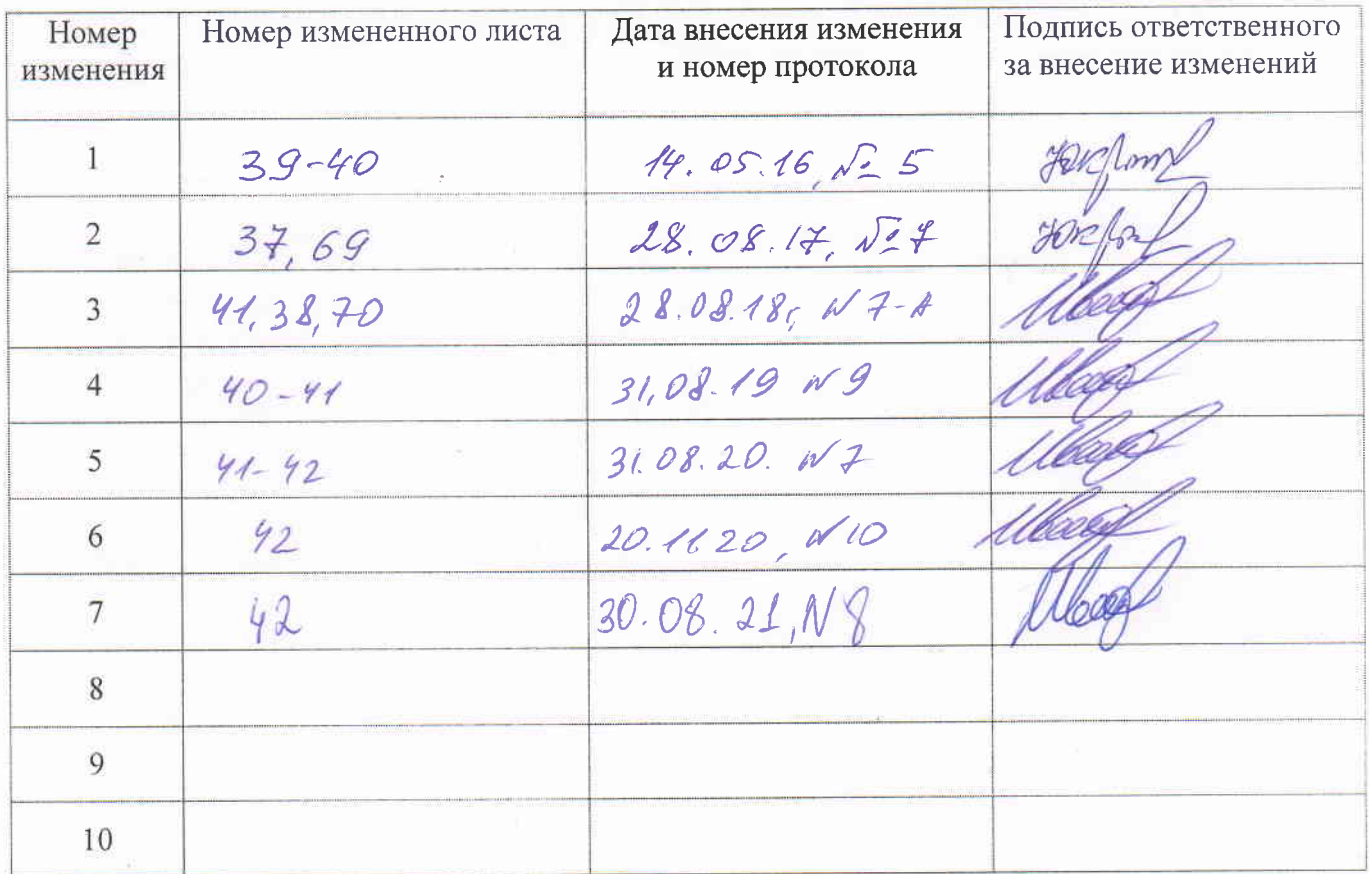 Номер изменения Номер измененного листа Дата внесения изменения и номер протокола Подпись ответственного за внесение изменений
1 39-40 14.05.16, № 5
2 37, 69 28.08.17, № 7
3 41, 38, 70 28.08.18г, N 7-А
4 40-41 31.08.19 N 9
5 41-42 31.08.20. N 7
6 42 20.11.20, N 10
7 42 30.08.21, N 8
8
9
10